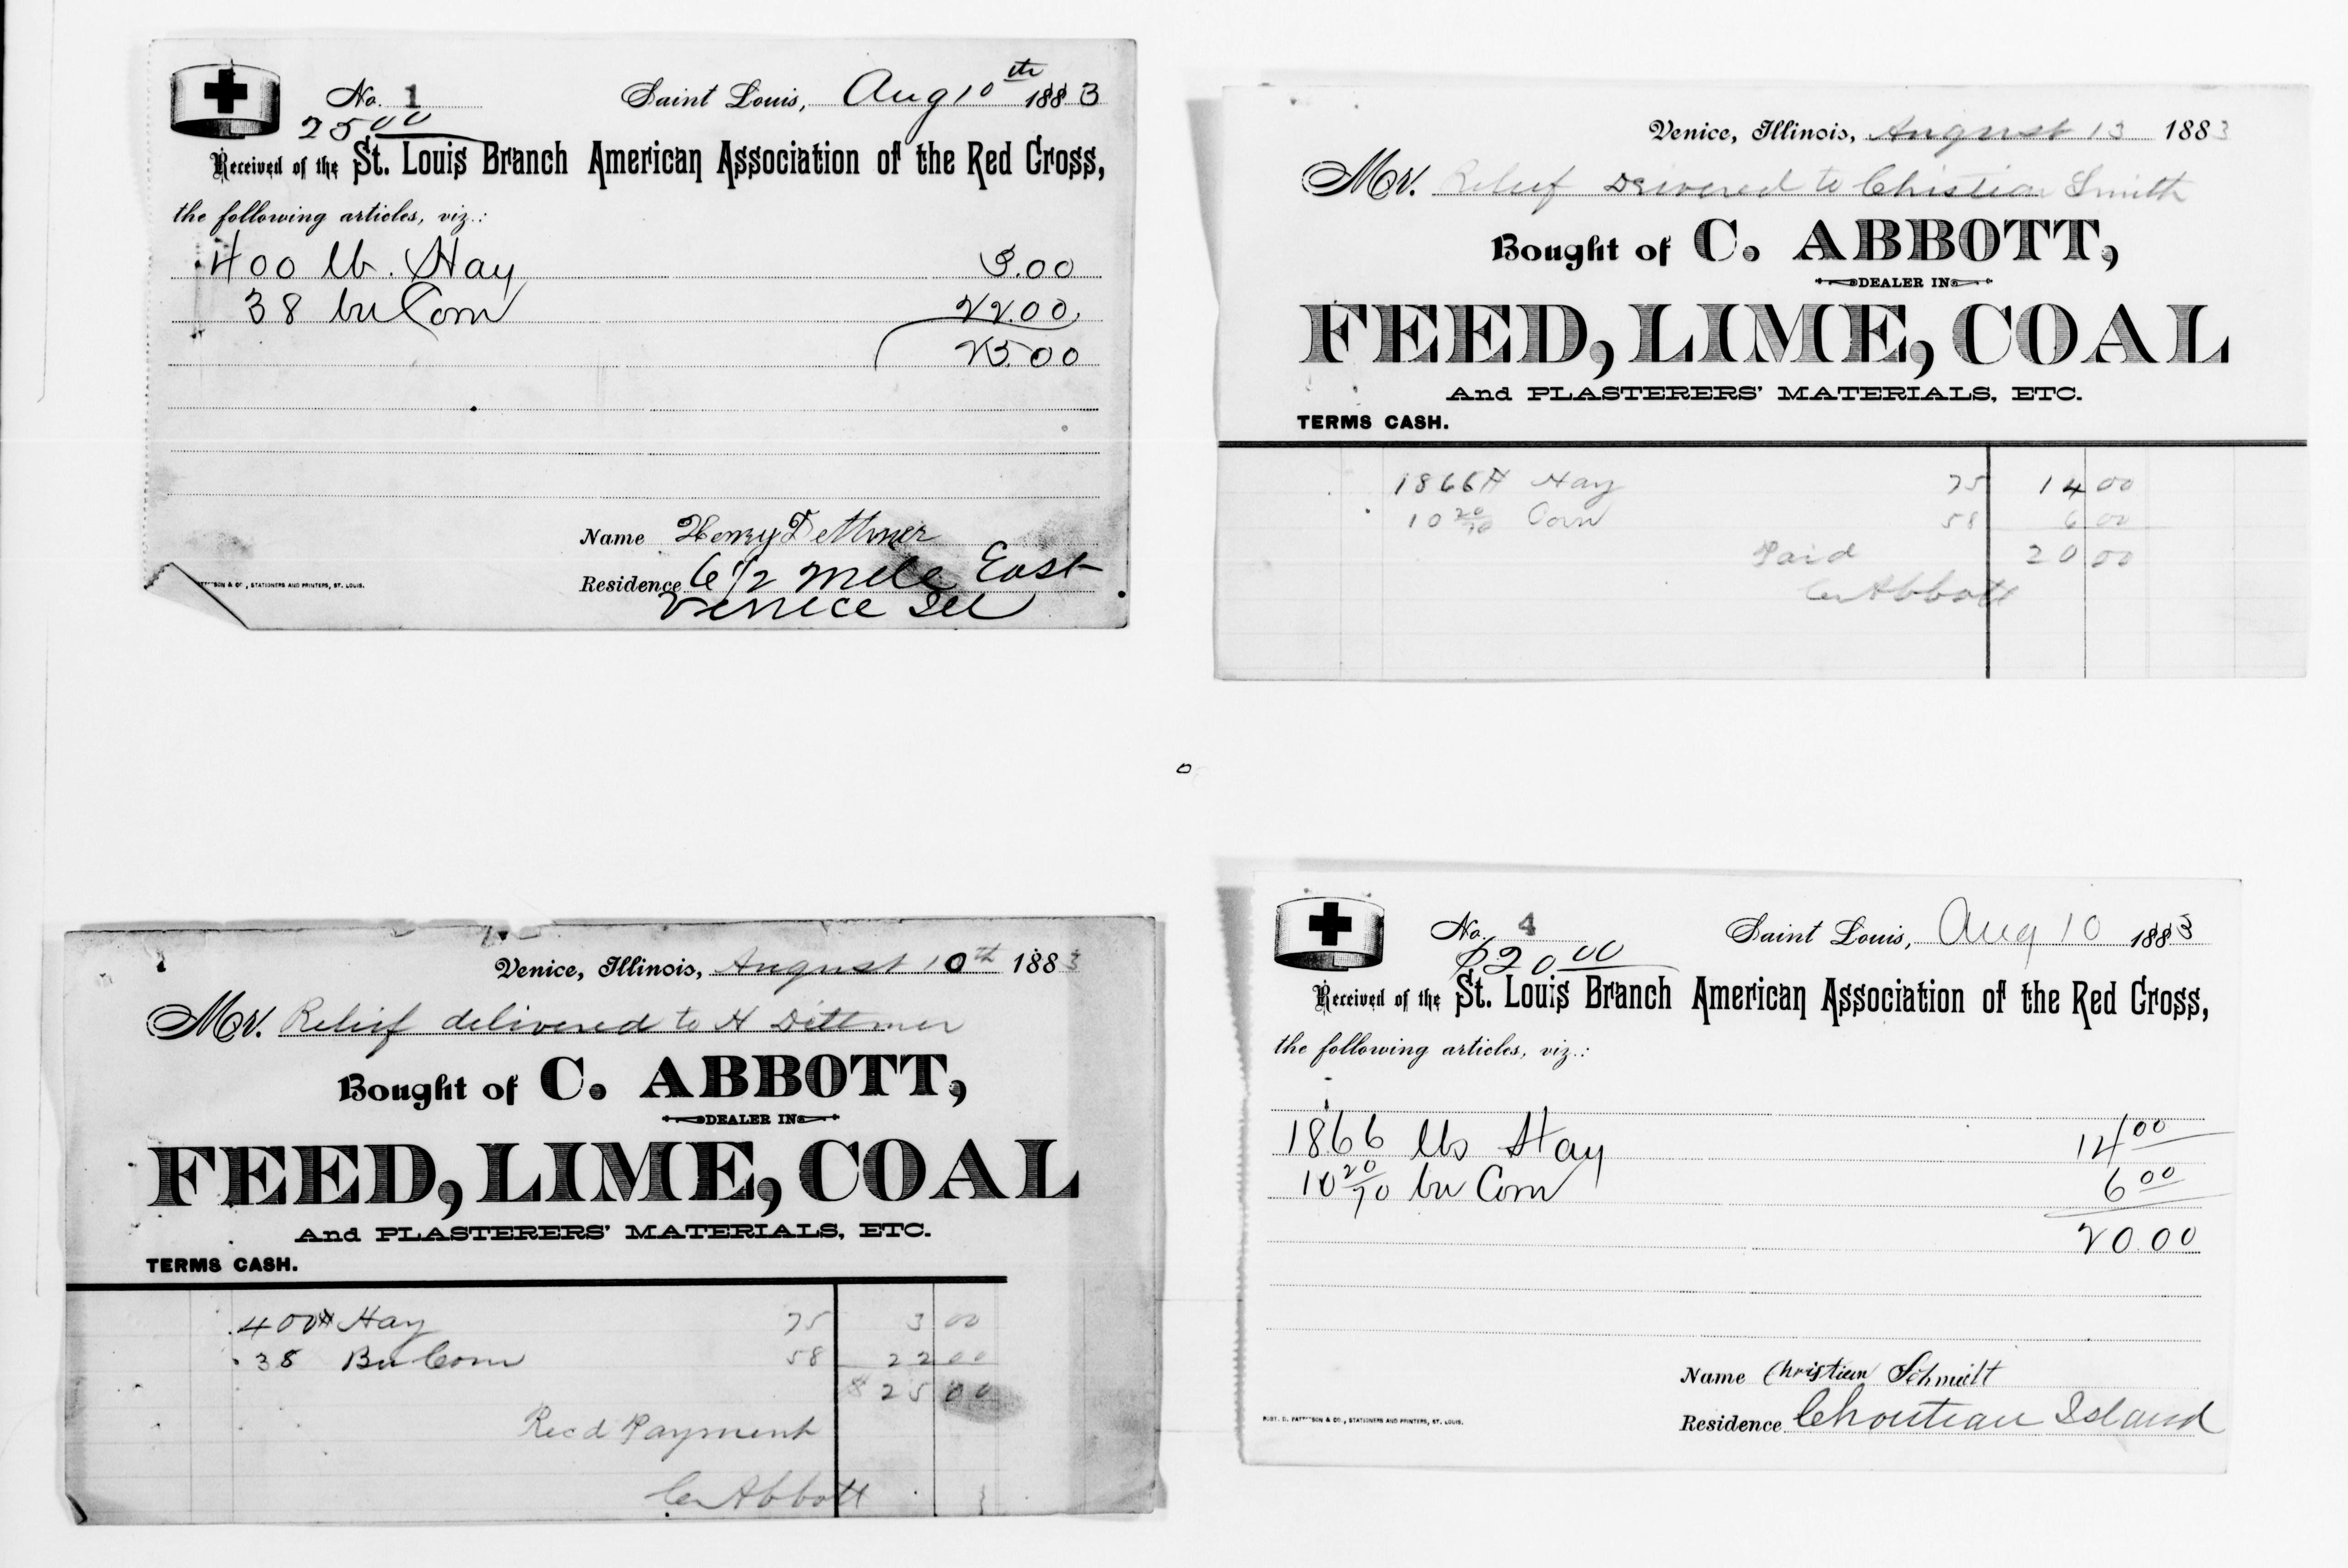 No. 1 Saint Louis, Aug 10th 1883
25 00
Received of the St. Louis Branch American Association of the Red Cross,
the following articles, viz.:
400 lb. Hay 3.00
38 bu Corn 22.00
25.00
Name Henry Dettmer
Residence 6 1/2 Mile East
Venice Ill
STATIONERS AND PRINTERS, ST. LOUIS.
Venice, Illinois, August 13 1883
Mr. Relief Delivered to Christian Smith
Bought of C. ABBOTT,
DEALER IN
FEED, LIME, COAL
And PLASTERERS' MATERIALS, ETC.
TERMS CASH.
1866# Hay 75 14 00
10 20/70 Corn 58 6 00
Paid 20 00
C Abbott
Venice, Illinois, August 10th 1883
Mr. Relief delivered to H Dittmer
Bought of C. ABBOTT,
DEALER IN
FEED, LIME, COAL
And PLASTERERS' MATERIALS, ETC.
TERMS CASH.
400# Hay 75 3 00
38 Bu Corn 58 22 00
$ 25 00
Recd Payment
C Abbott
No. 4 Saint Louis, Aug 10 1883
$20 00
Received of the St. Louis Branch American Association of the Red Cross,
the following articles, viz.:
1866 lbs Hay 14 00
10 20/70 bu Corn 6 00
20.00
Name Christian Schmidt
Residence Chouteau Island
STATIONERS AND PRINTERS, ST. LOUIS.